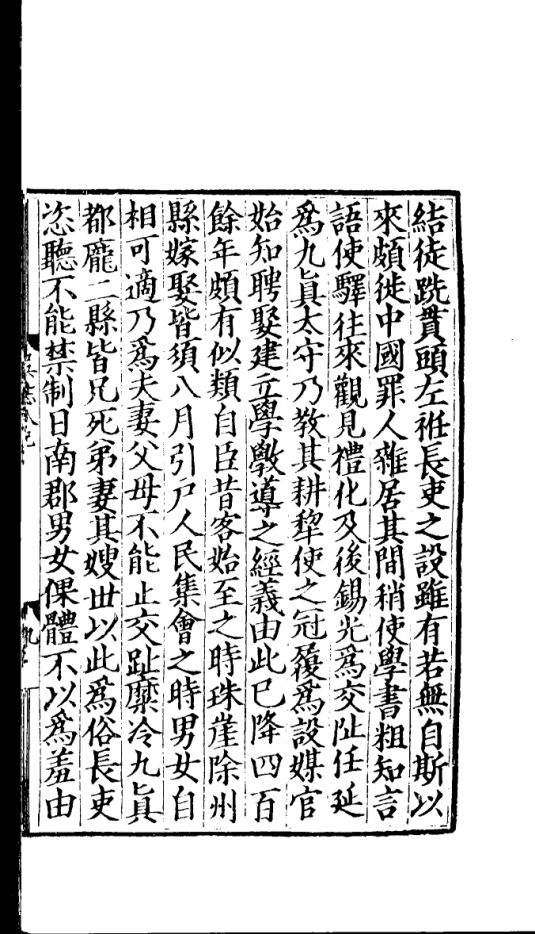 結徒跣貫頭左袵長吏之設雖有若無自斯以
來頗徙中國罪人雜居其間稍使學書粗知言
語使驛往來觀見禮化及後錫光爲交阯任延
爲九眞太守乃敎其耕犂使之冠履爲設媒官
始知聘娶建立學斆導之經義由此巳降四百
餘年頗有似類自臣昔客始至之時珠崖除州
縣嫁娶皆須八月引戸人民集會之時男女自
相可適乃爲夫妻父母不能止交趾糜冷九眞
都龐二縣皆兄死弟妻其嫂世以此爲俗長吏
恣聽不能禁制日南郡男女倮體不以爲羞由